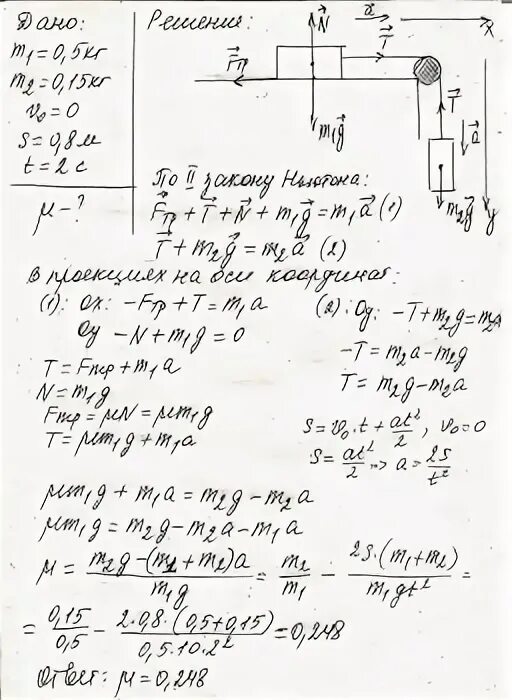 Дано: Решение:
m₁ = 0,5 кг
m₂ = 0,15 кг
v₀ = 0
s = 0,8 м
t = 2 с
μ – ?
N⃗ a⃗ x
F⃗тр T⃗
m₁g⃗ T⃗ a⃗
m₂g⃗ y
По II закону Ньютона:
F⃗тр + T⃗ + N⃗ + m₁g⃗ = m₁a⃗ (1)
T⃗ + m₂g⃗ = m₂a⃗ (2)
В проекциях на оси координат:
(1): Ox: –Fтр + T = m₁a
Oy –N + m₁g = 0
T = Fтр + m₁a
N = m₁g
Fтр = μN = μm₁g
T = μm₁g + m₁a
(2): Oy: –T + m₂g = m₂a
–T = m₂a – m₂g
T = m₂g – m₂a
s = v₀·t + at²/2, v₀ = 0
s = at²/2 => a = 2s/t²
μm₁g + m₁a = m₂g – m₂a
μm₁g = m₂g – m₂a – m₁a
μ = (m₂g – (m₂ + m₂)a)/(m₁g) = m₂/m₁ – 2s·(m₁ + m₂)/(m₁gt²) =
= 0,15/0,5 – 2·0,8·(0,5+0,15)/(0,5·10·2²) = 0,248
Ответ: μ = 0,248